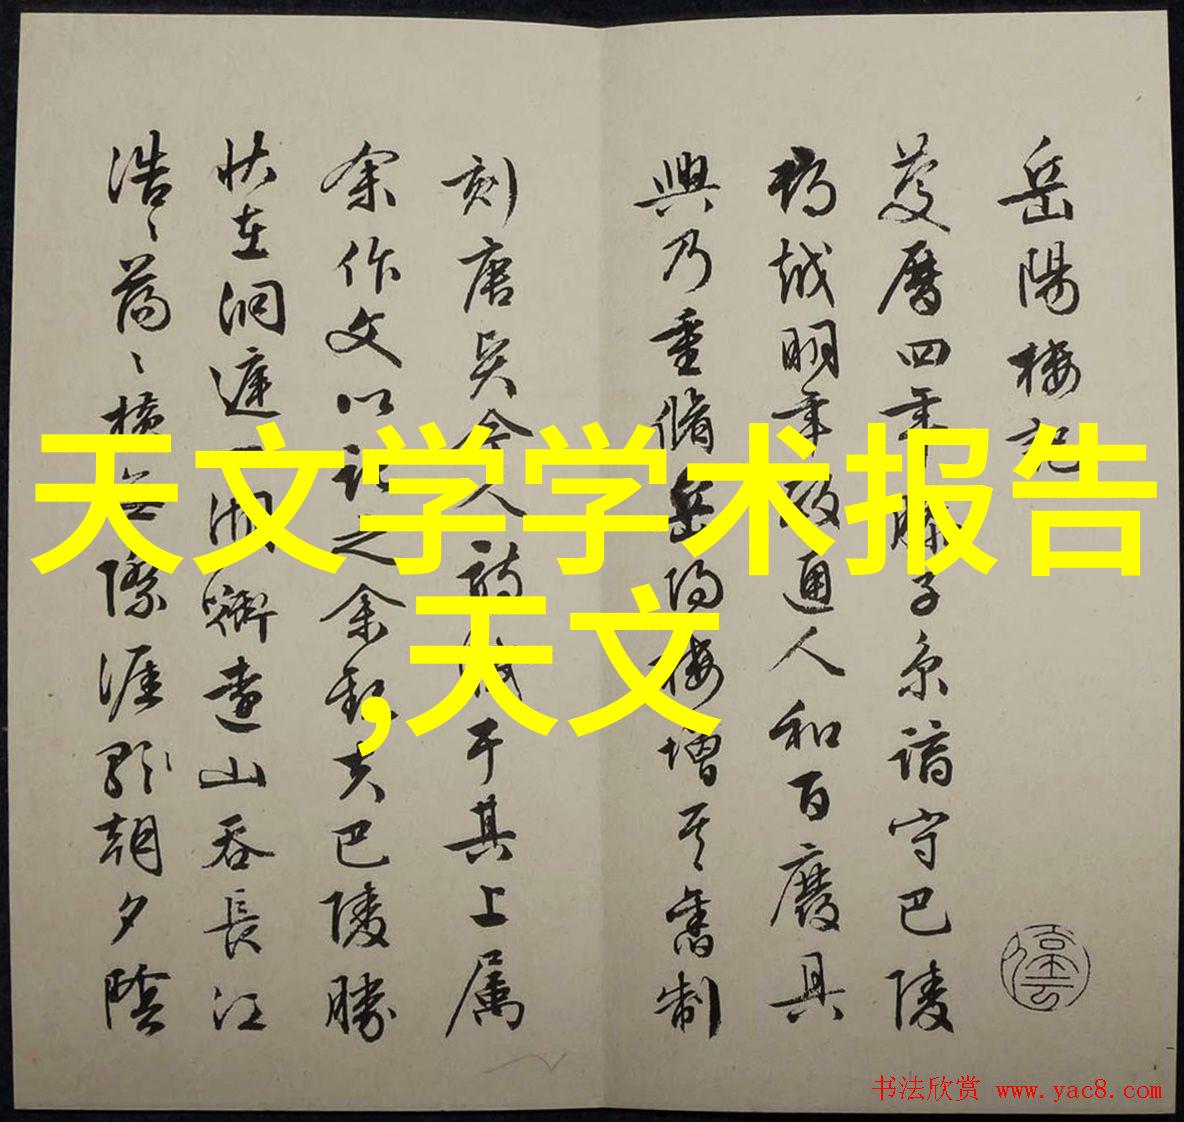 岳陽樓記
慶曆四年滕子京謫守巴陵
郡越明年政通人和百廢具
興乃重脩岳陽樓增其舊制
刻唐賢今人詩賦于其上屬
余作文以記之余觀夫巴陵勝
狀在洞庭一湖銜遠山吞長江
浩〻蕩〻橫無際涯朝夕陰
天文学学术报告
,天文
书法欣赏 www.yac8.com